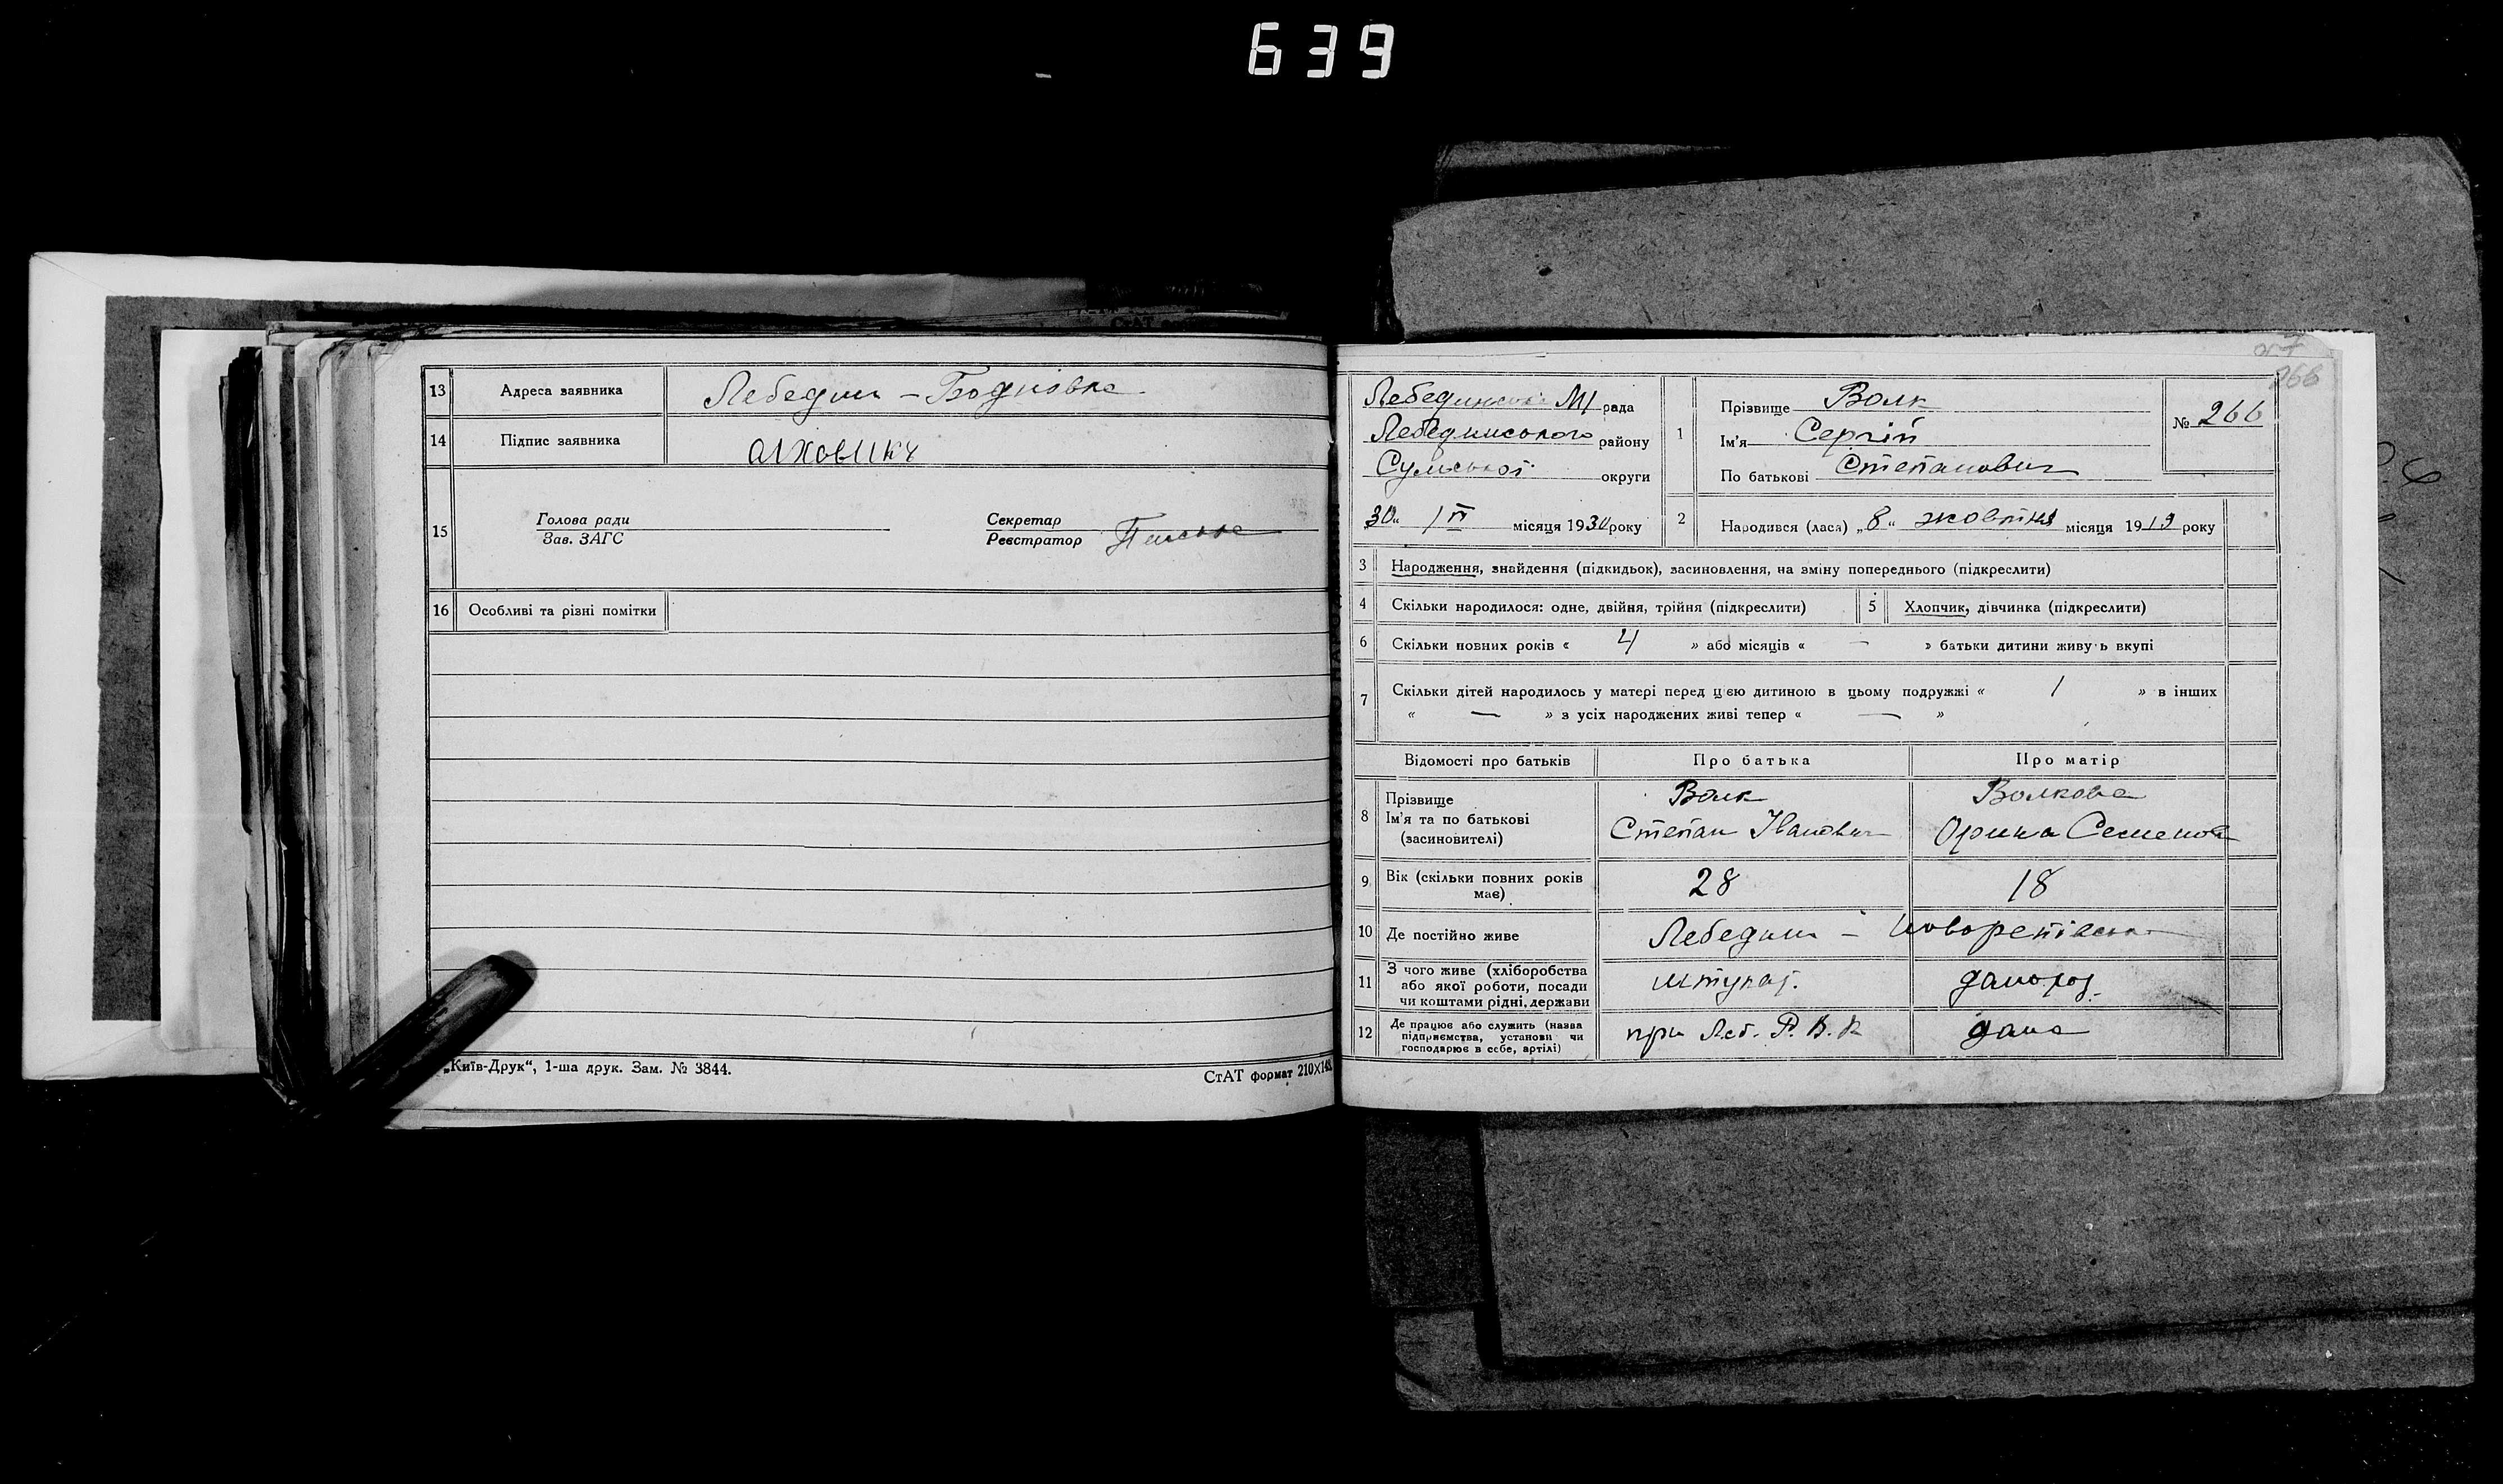 639
13 Адреса заявника Лебедин – Боднівка
14 Підпис заявника
15 Голова ради
Зав. ЗАГС
Секретар
Реєстратор
16 Особливі та різні помітки
„Київ-Друк“, 1-ша друк. Зам. № 3844.
СтАТ формат 210×148
266
Лебединська М/ рада
Лебединського району
Сумської округи
30 „ місяця 1930 року
1 Прізвище Волк
Ім'я Сергій
По батькові Степанович
№ 266
2 Народився (лася) „8“ жовтня місяця 1919 року
3 Народження, знайдення (підкидьок), засиновлення, на зміну попереднього (підкреслити)
4 Скільки народилося: одне, двійня, трійня (підкреслити)
5 Хлопчик, дівчинка (підкреслити)
6 Скільки повних років « 4 » або місяців « — » батьки дитини живуть вкупі
7 Скільки дітей народилось у матері перед цією дитиною в цьому подружжі « 1 » в інших
« — » з усіх народжених живі тепер « — »
Відомості про батьків Про батька Про матір
8 Прізвище
Ім'я та по батькові
(засиновителі)
Волк
Степан Іванович
Волкова
Орина Семенов
9 Вік (скільки повних років має) 28 18
10 Де постійно живе Лебедин –
11 З чого живе (хліборобства
або якої роботи, посади
чи коштами рідні, держави
штукат. домогосп.
12 Де працює або служить (назва
підприємства, установи чи
господарює в себе, артілі)
при Леб. Р. В. К дома